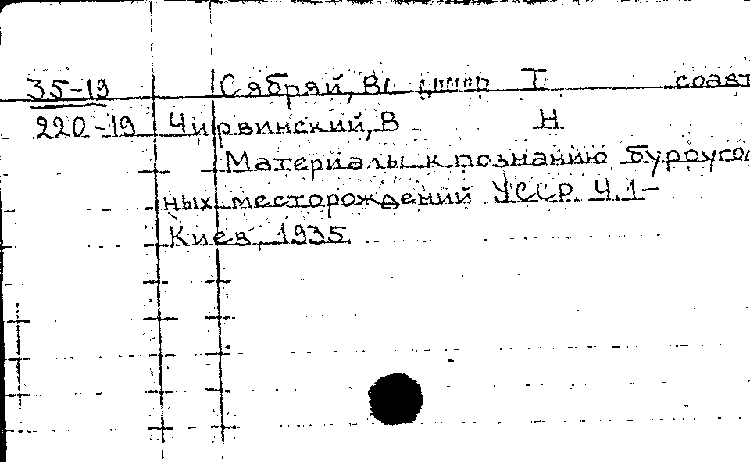 35-19 Сябряй, Вл Т соавт
220-19 Чирвинский, В Н
Материалы к познанию буроугол
ных месторождений УССР Ч. 1-
Киев, 1935.